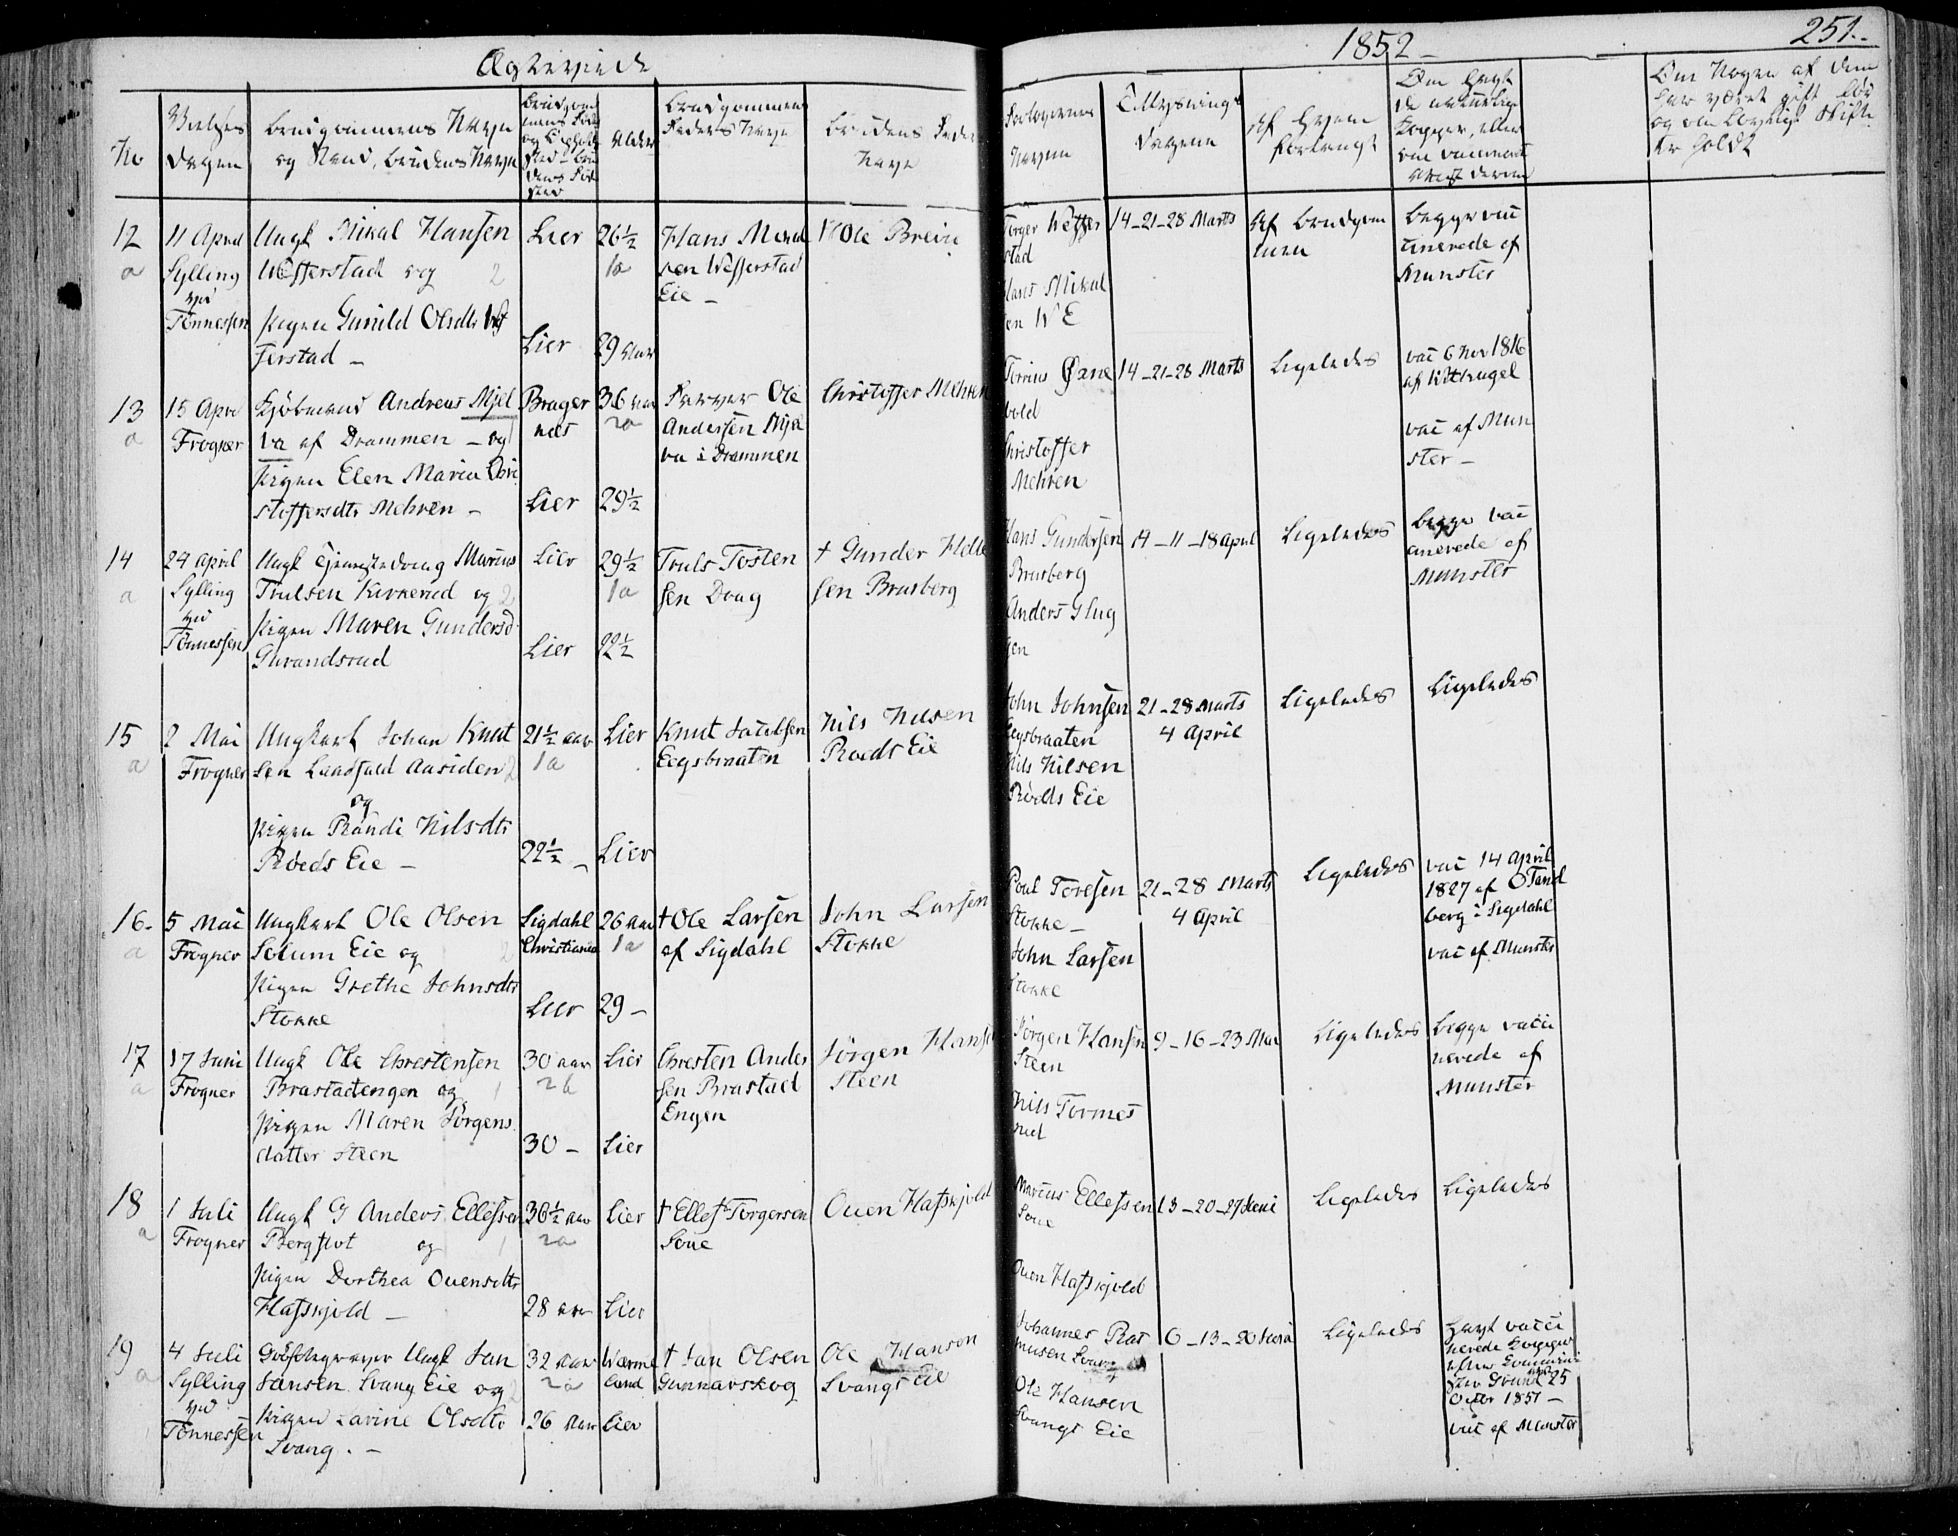 Ægteviede
1852
251.
No
Vielses
Dagen
Brudgommens Navn
og Stand, Brudens Navn
Alder
Brudgommens
Faders Navn
Brudens Faders
Navn
Forlovernes
Navne
Tillysnings
Dagene
Af hvem
forlangt
Om havt
de naturlige
Kopper, eller
om vaccineret
Om Nogen af dem
har været gift før
og om lovligt Skifte
er holdt
12
a
11 April
Sylling
ved
Tønnessen
Ungk Mikal Hansen
Wefferstad og
Pigen Gunild Olsdtr Wef
ferstad –
Lier
Lier
26½
1a
29 Aar
Hans Mikal
sen Wefferstad
Eie –
Ole Breiv
Torger Weffer
stad
Hans Mikal
sen W E
14–21–28 Marts
Af Brudgom
men
Begge vac
cinerede af
Munster
13
a
15 Apri
Frogner
Kjöbmand Andreas Mjel
va af Drammen – og
Pigen Elen Maria Chri
stoffersdtr Mehren –
Brager
næs
Lier
36 Aar
2a
29½
Farver Ole
Andersen Mjel
va i Drammen
Christoffer Mehren
bold
Christoffer
Mehren
14–21–28 Marts
Ligeledes
vac 6 Nov 1816
af Kittengel
vac af Mun
ster –
14
a
24 April
Sylling
ved
Tønnessen
Ungk Tjenestedreng Marius
Trulsen Kirkerud og
Pigen Maren Gundersd
Lier
Lier
29½
1a
22½
Truls Tosten
sen Doug
† Gunder Helle
sen Brusberg
Hans Gundersen
Brusberg
Anders Glug
gen
14–11–18 April
Ligeledes
Begge vac
cinerede af
Munster
15
a
2 Mai
Frogner
Ungkarl Johan Knut
sen Landfald Aasiden
og
Pigen Randi Nilsdtr
Röeds Eie –
21½ aar
1a
22½ –
Lier
Lier
Knut Jacobsen
Eegsbraaten
Nils Nilsen
Röeds Eie
John Johnsen
Eegsbraaten
Nils Nilsen
Röeds Eie
21–28 Marts
4 April
Ligeledes
Ligeledes
16.
a
5 Mai
Frogner
Ungkarl Ole Olsen
Solum Eie og
Pigen Grethe Johnsdtr
Stokke
Sigdahl
Christiania
Lier
26 Aar
1a
29 –
† Ole Larsen
af Sigdahl
John Larsen
Stokke
Poul Toresen
Stokke –
John Larsen
Stokke
21–28 Marts
4 April
Ligeledes
vac 14 April
1827 af O Tand
berg i Sigdahl
vac af Munster
17
a
17 Juni
Frogner
Ungk Ole Chrestensen
Brastadengen og
Pigen Maren Jörgens
datter Steen
30 aar
2b
30 –
Lier
Lier
Chresten Ander
sen Brastad
Engen
Jörgen Hansen
Steen
Jörgen Hansen
Steen
Nils Tormes
rud
9–16–23 Mai
Ligeledes
Begge vacci
nerede af
Munster
18
a
1 Juli
Frogner
Ungk G Anders Ellefsen
Bergflot og
Pigen Dorthea Ouensdtr
Hafskjold –
30½ aar
2a
28 aar
Lier
Lier
† Ellef Torgersen
Soue
Ouen Hafskjold
Marcus Ellefsen
Soue
Ouen Hafskjold
13–20–27 Juni
Ligeledes
Ligeledes
19
a
4 Juli
Sylling
ved
Tønnessen
Ungk Jan
Jansen Svang Eie og
Pigen Lavine Olsdtr
Svang . –
32 aar
2a
26 Aar
Wærme
land
Lier
† Jan Olsen
Gunnarskog
Ole Hanson
Svangs Eie
Johannes Ras
musen Svang
Ole Hansen
Svangs Eie
6–13–20 Juni
Ligeledes
havt vacci
nerede Kopper
25
Octbr 1851 –
vac af Munster